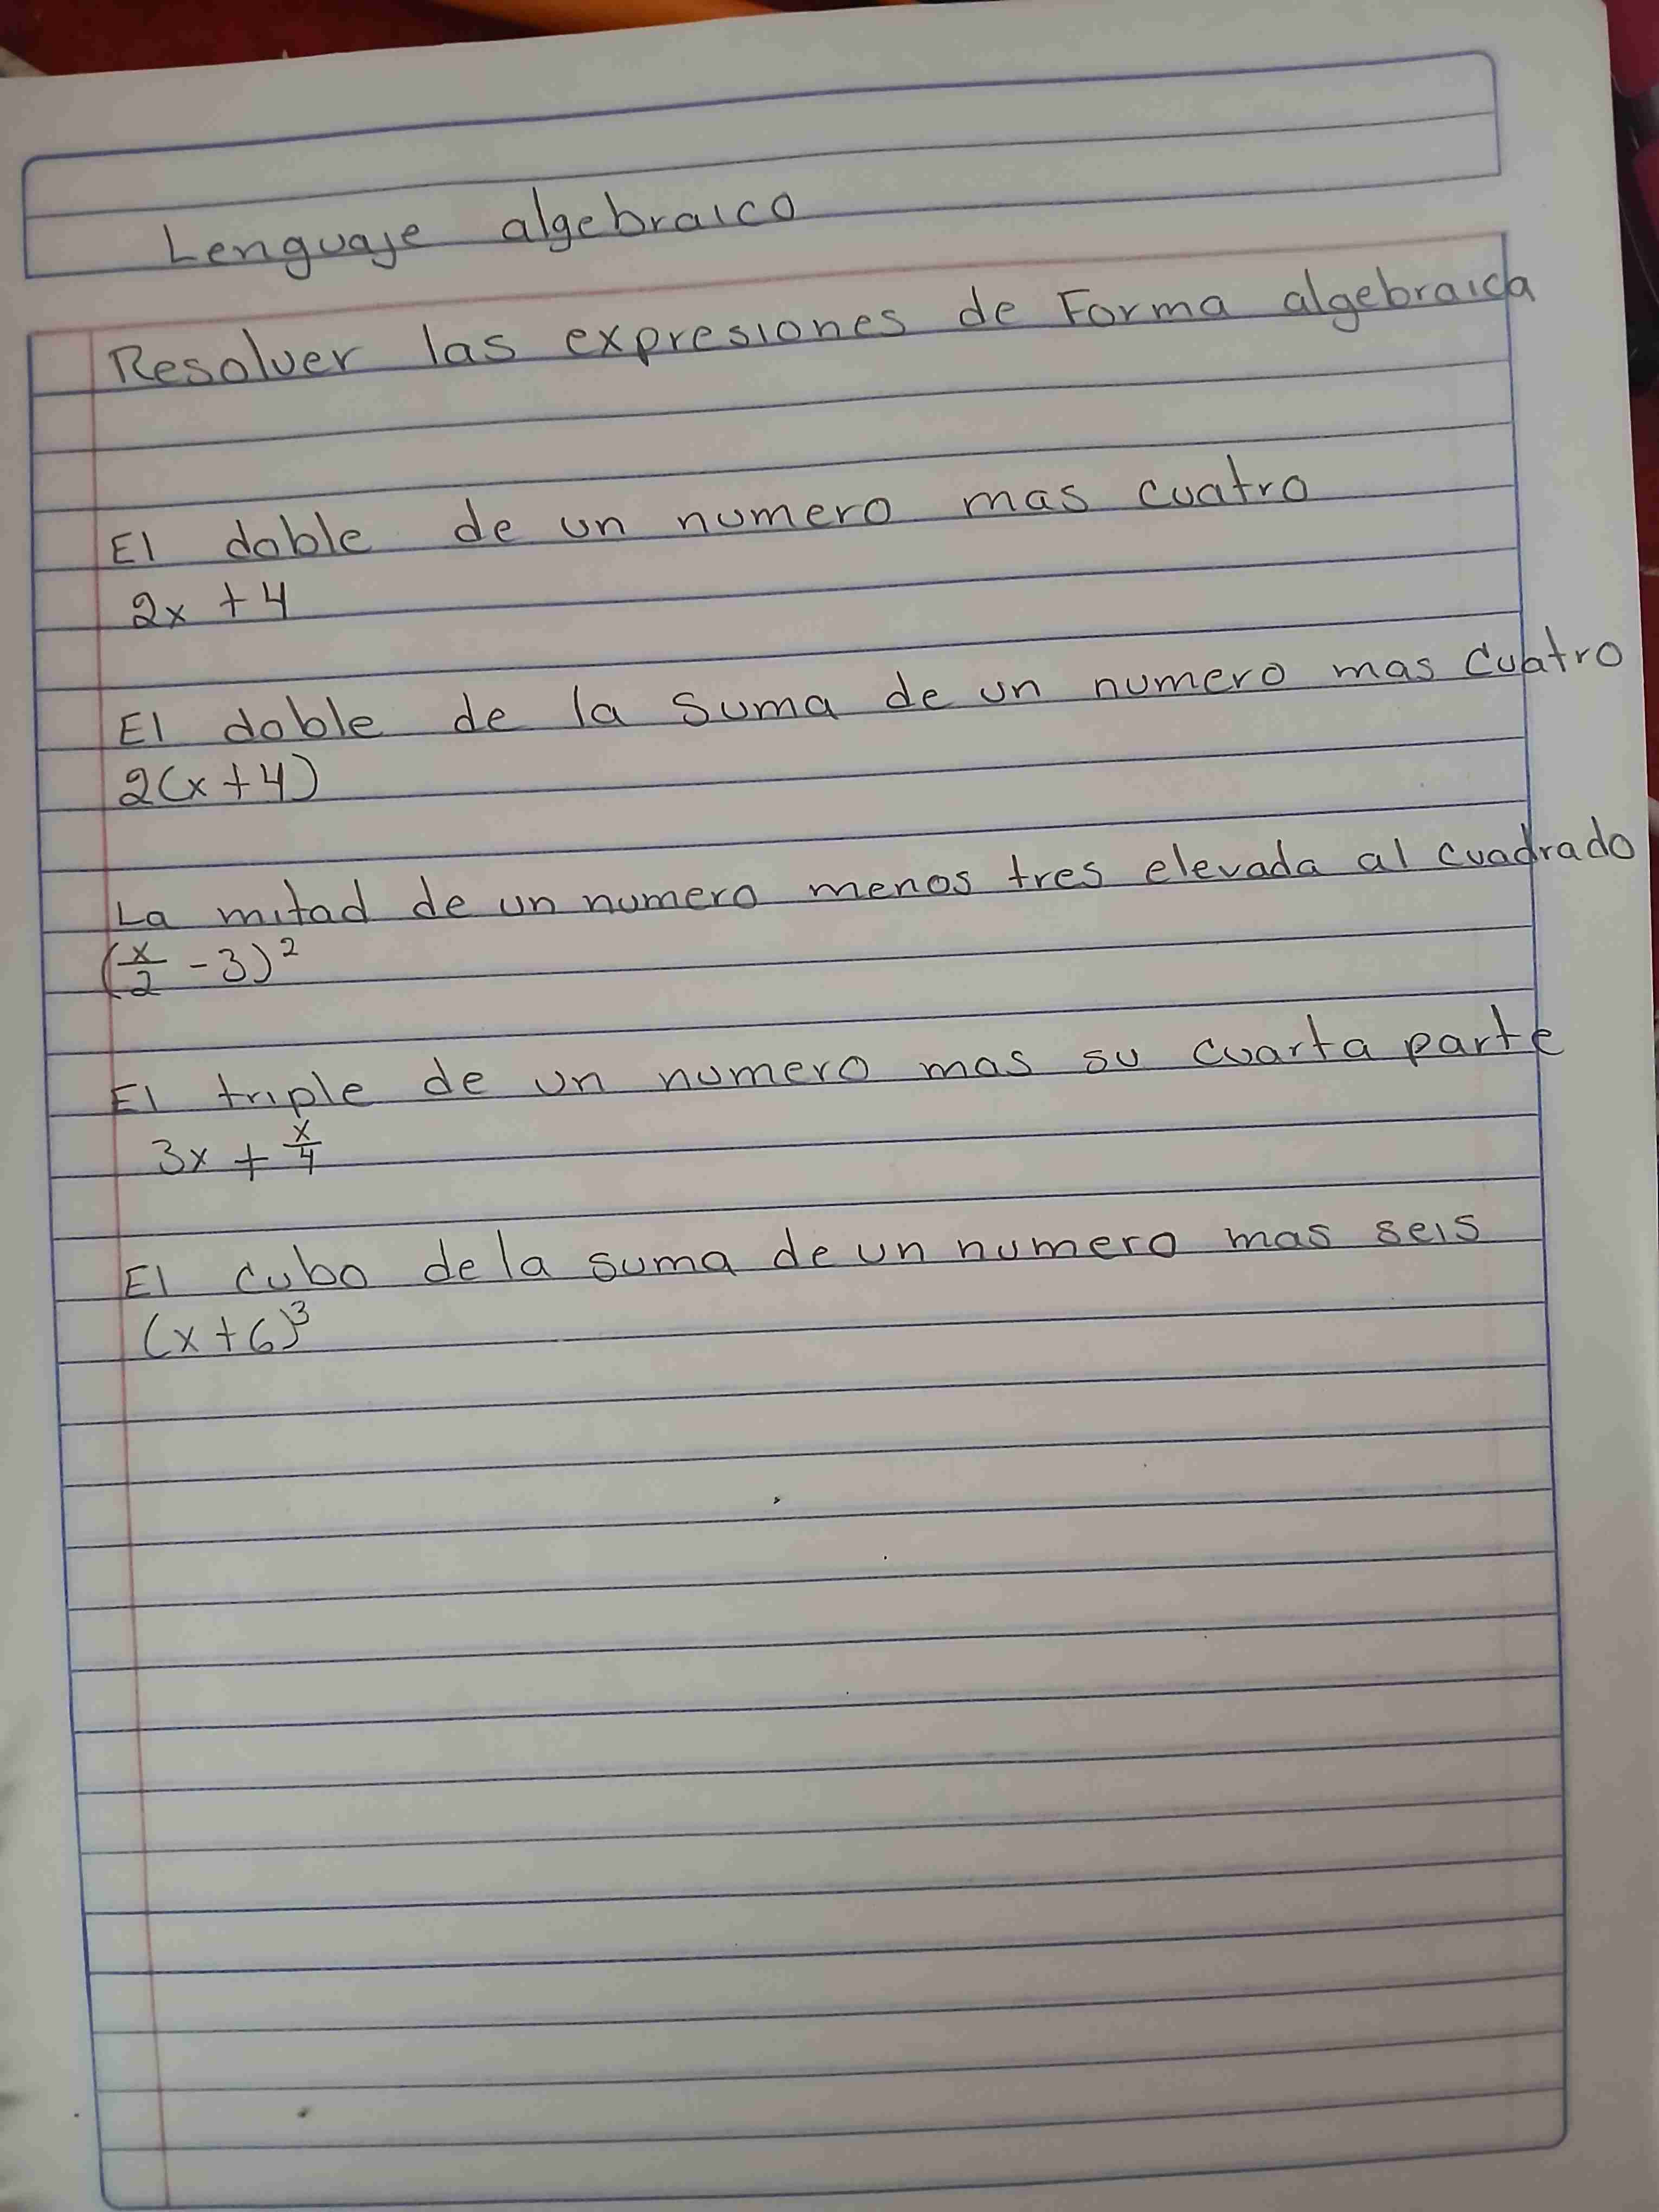 Lenguaje algebraico
Resolver las expresiones de Forma algebraica
El doble de un numero mas cuatro
2x + 4
El doble de la suma de un numero mas cuatro
2(x + 4)
La mitad de un numero menos tres elevada al cuadrado
(x/2 - 3)²
El triple de un numero mas su cuarta parte
3x + x/4
El cubo de la suma de un numero mas seis
(x + 6)³